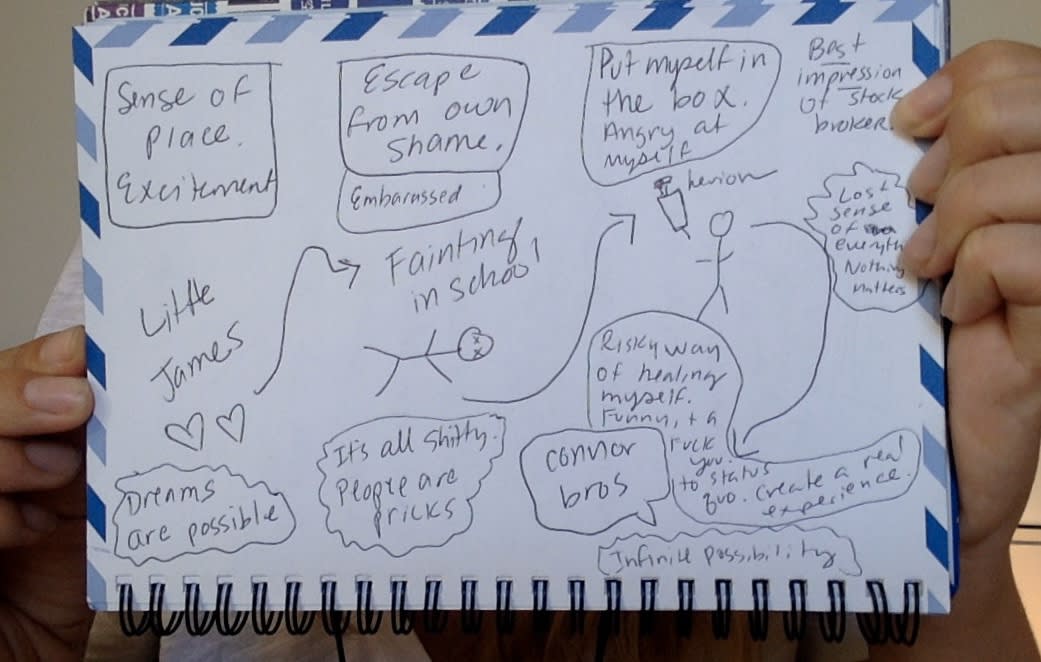 Sense of
place.
Excitement
Little
James
Dreams
are possible
Escape
from own
shame.
Embarassed
Fainting
in school
x x
It's all shitty.
People are
pricks
Put myself in
the box.
Angry at
myself
herion
Best
impression
of stock
broker.
Lost
sense
of
everyth
Nothing
matters
Risky way
of healing
myself.
Funny, + a
Fuck
you
to status
quo. Create a real
experience.
connor
bros
Infinite possibility